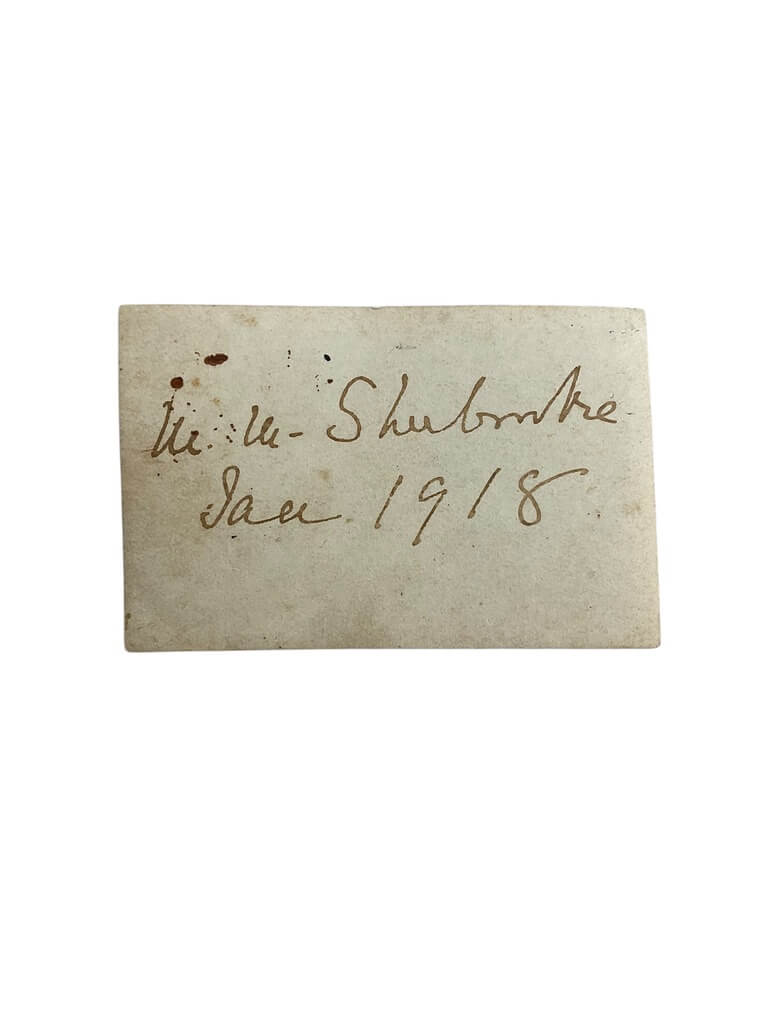 M. M. Sherbrooke
Jan. 1918